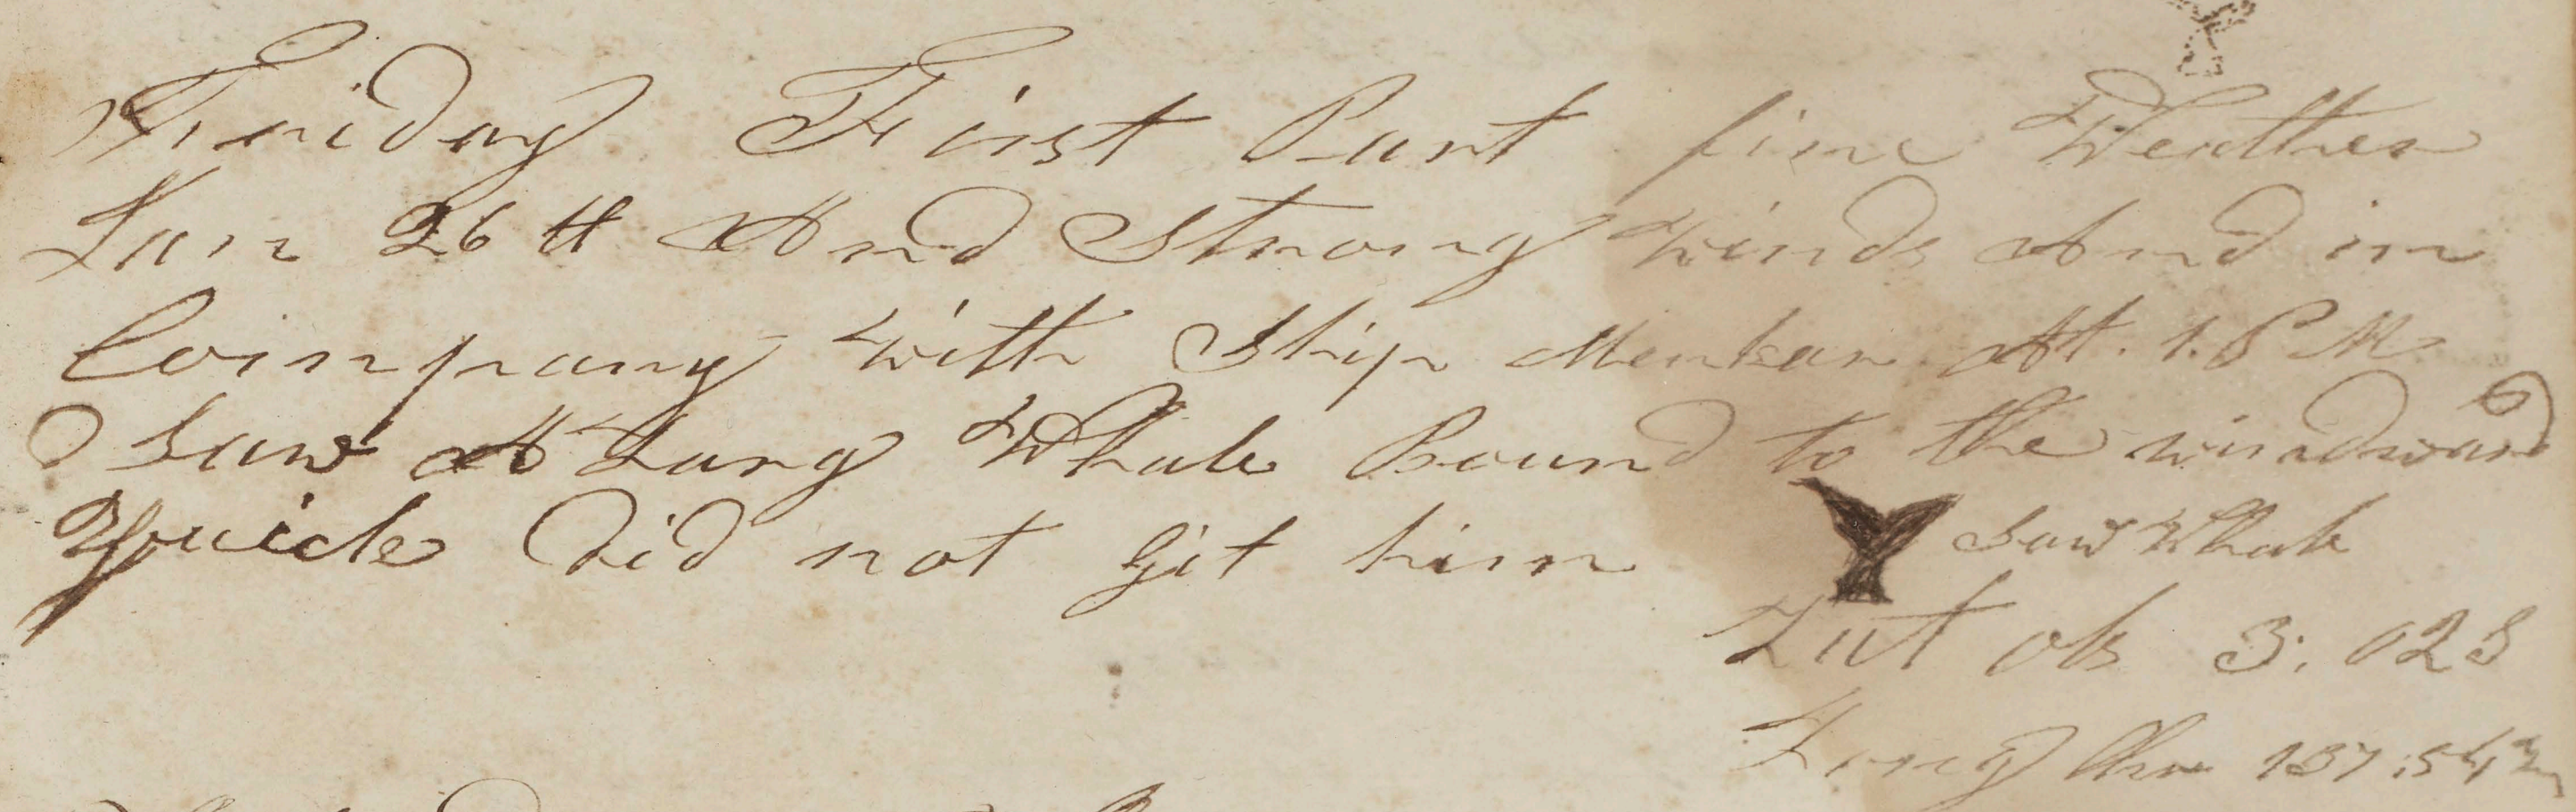 Friday First Part fine Weather
Jan 26th And Strong winds And in
Company with Ship Menkar At. 1. P M
Saw A Larg Whale Bound to the windward
Quick Did not Git him
Saw Whale
Lat ob 3:02 S
Long Chr 137:54